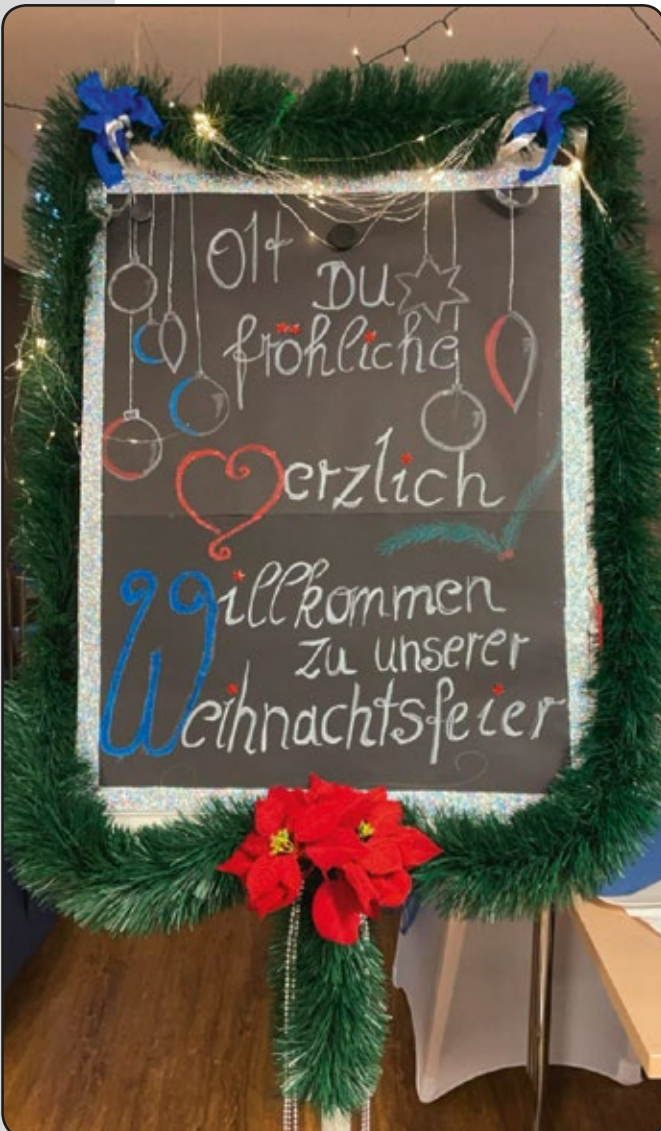 OH
DU
fröhliche
Herzlich
Willkommen
zu unserer
Weihnachtsfeier